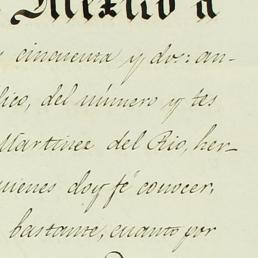 Mexico a
cincuenta y dos: an-
lico, del número y tes
Martinez del Rio, her-
quienes doy fé conocer,
bastante, cuanto por